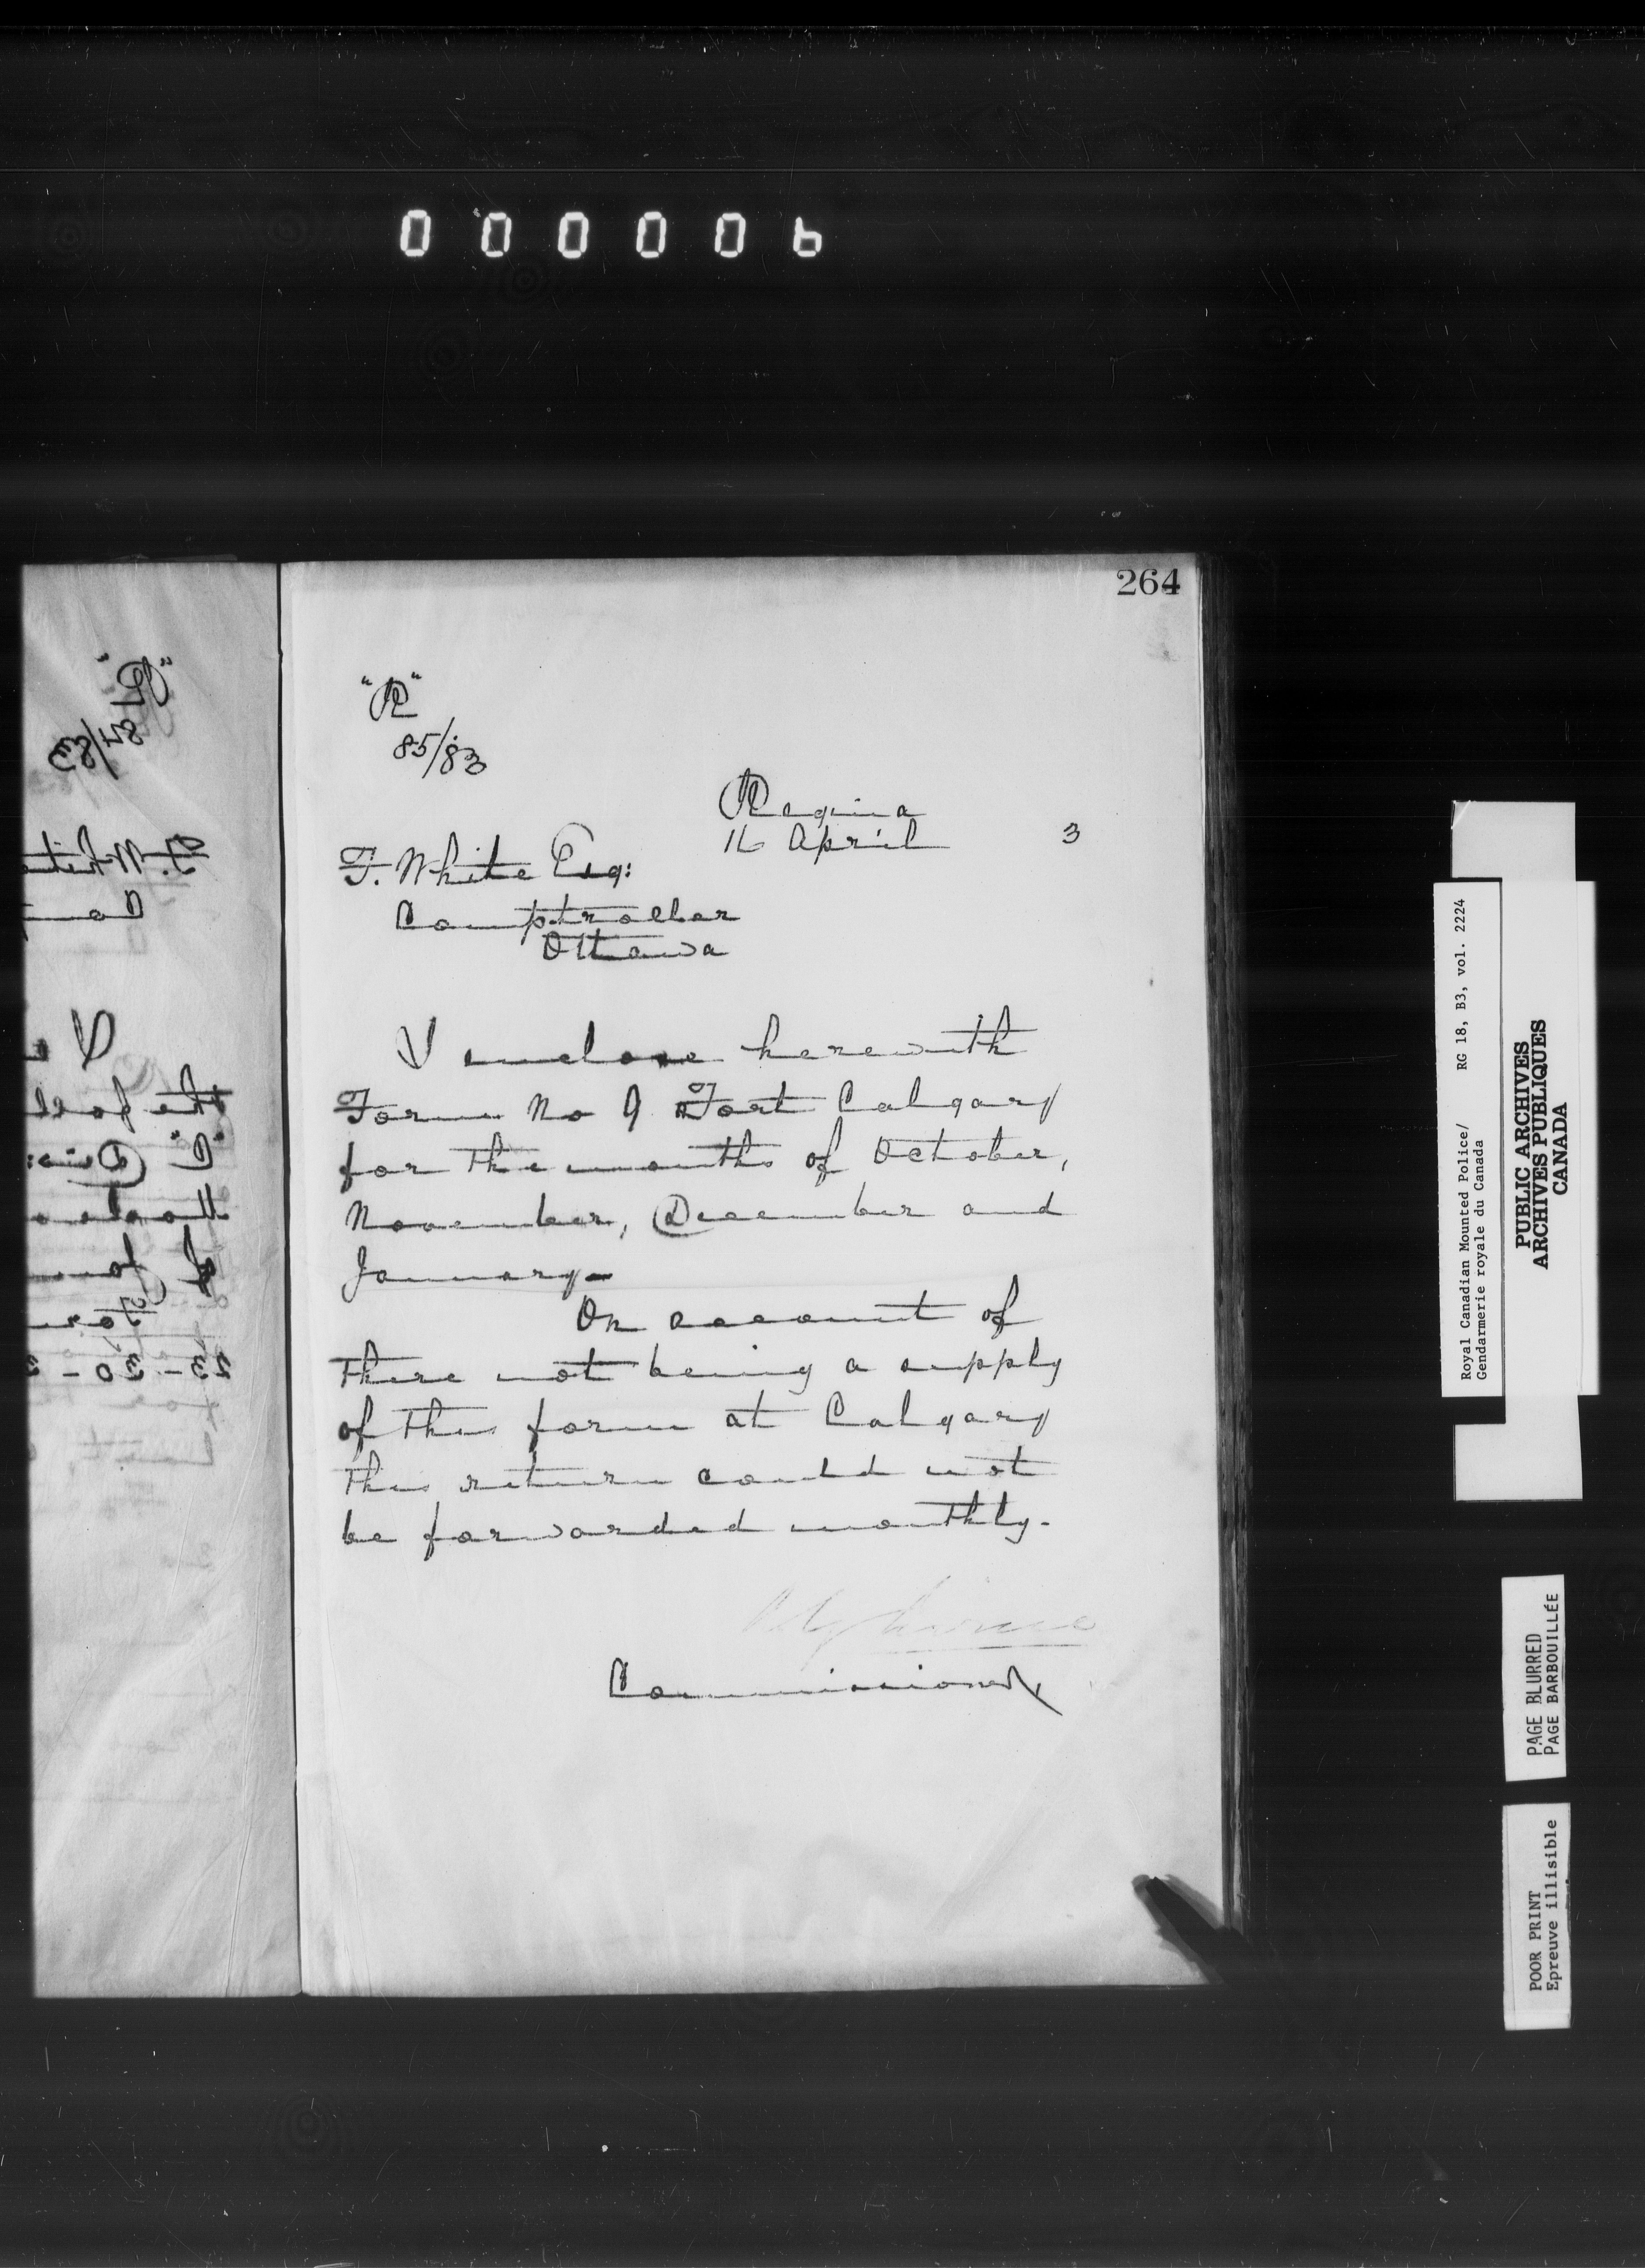 000006
264
"R"
85/83
Regina
16 April 3
F. White Esq:
Comptroller
Ottawa
I enclose herewith
Form No 9 Fort Calgary
for the months of October,
November, December and
January-
On account of
there not being a supply
of this form at Calgary
this return could not
be forwarded monthly-
Commissioner
Royal Canadian Mounted Police/ RG 18, B3, vol. 2224
Gendarmerie royale du Canada
PUBLIC ARCHIVES
ARCHIVES PUBLIQUES
CANADA
PAGE BLURRED
PAGE BARBOUILLÉE
POOR PRINT
Epreuve illisible